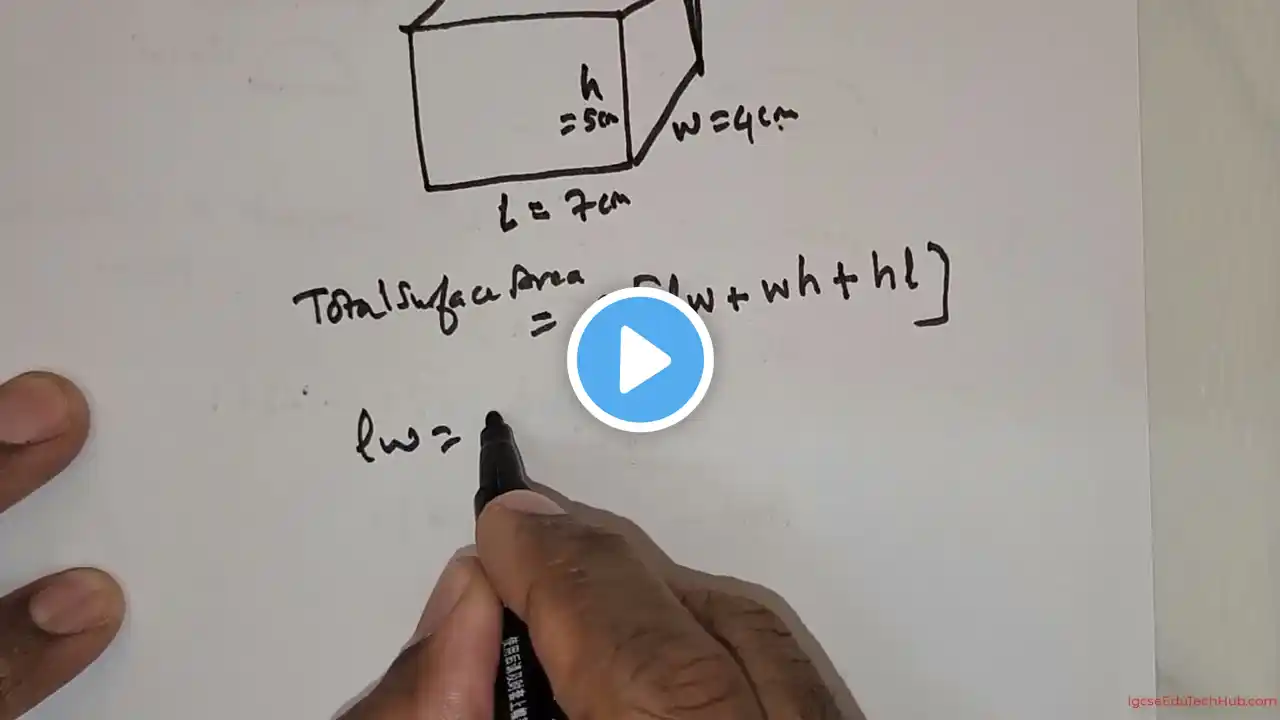 h
= 5cm
w = 4cm
l = 7cm
Total Surface Area
= lw + wh + hl]
lw =
IgcseEduTechHub.com